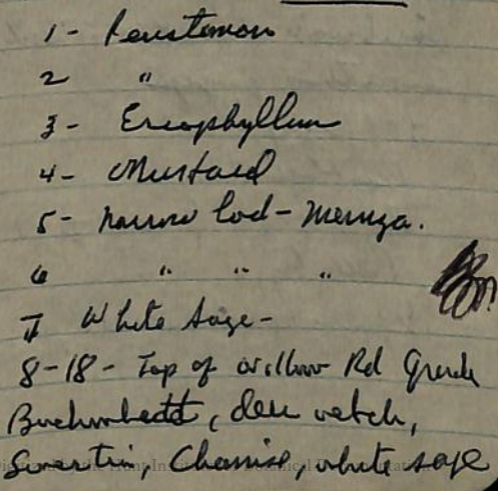 1- Penstemon
2 "
3- Eriophyllum
4- Mustard
5- narrow lvd-
6 " " "
7 White Sage-
8-18- Top of Willow Rd Grade
Buckwheat, deer vetch,
Chamise, white sage